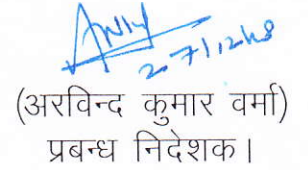 (अरविन्द कुमार वर्मा)
प्रबन्ध निदेशक।